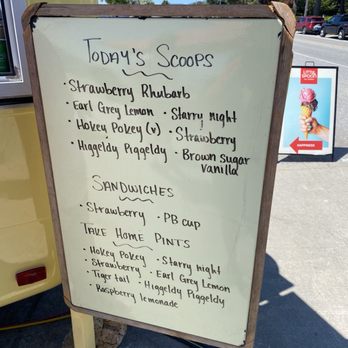 TODAY'S SCOOPS
• Strawberry Rhubarb
• Earl Grey Lemon • Starry night
• Hokey Pokey (v) • Strawberry
• Higgeldy Piggeldy • Brown sugar vanilla
SANDWICHES
• Strawberry • PB cup
TAKE HOME PINTS
• Hokey Pokey • Starry night
• Strawberry • Earl Grey Lemon
• Tiger tail • Higgeldy Piggeldy
• Raspberry lemonade
HAPPINESS